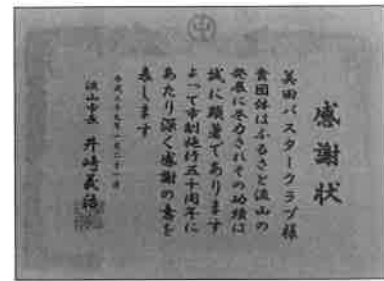 感謝状
美田バスタークラブ様
貴団体はふるさと流山の
発展に尽力されその功績は
誠に顕著であります
よって市制施行五十周年に
あたり深く感謝の意を
表します
平成二十九年一月二十一日
流山市長 井崎義治